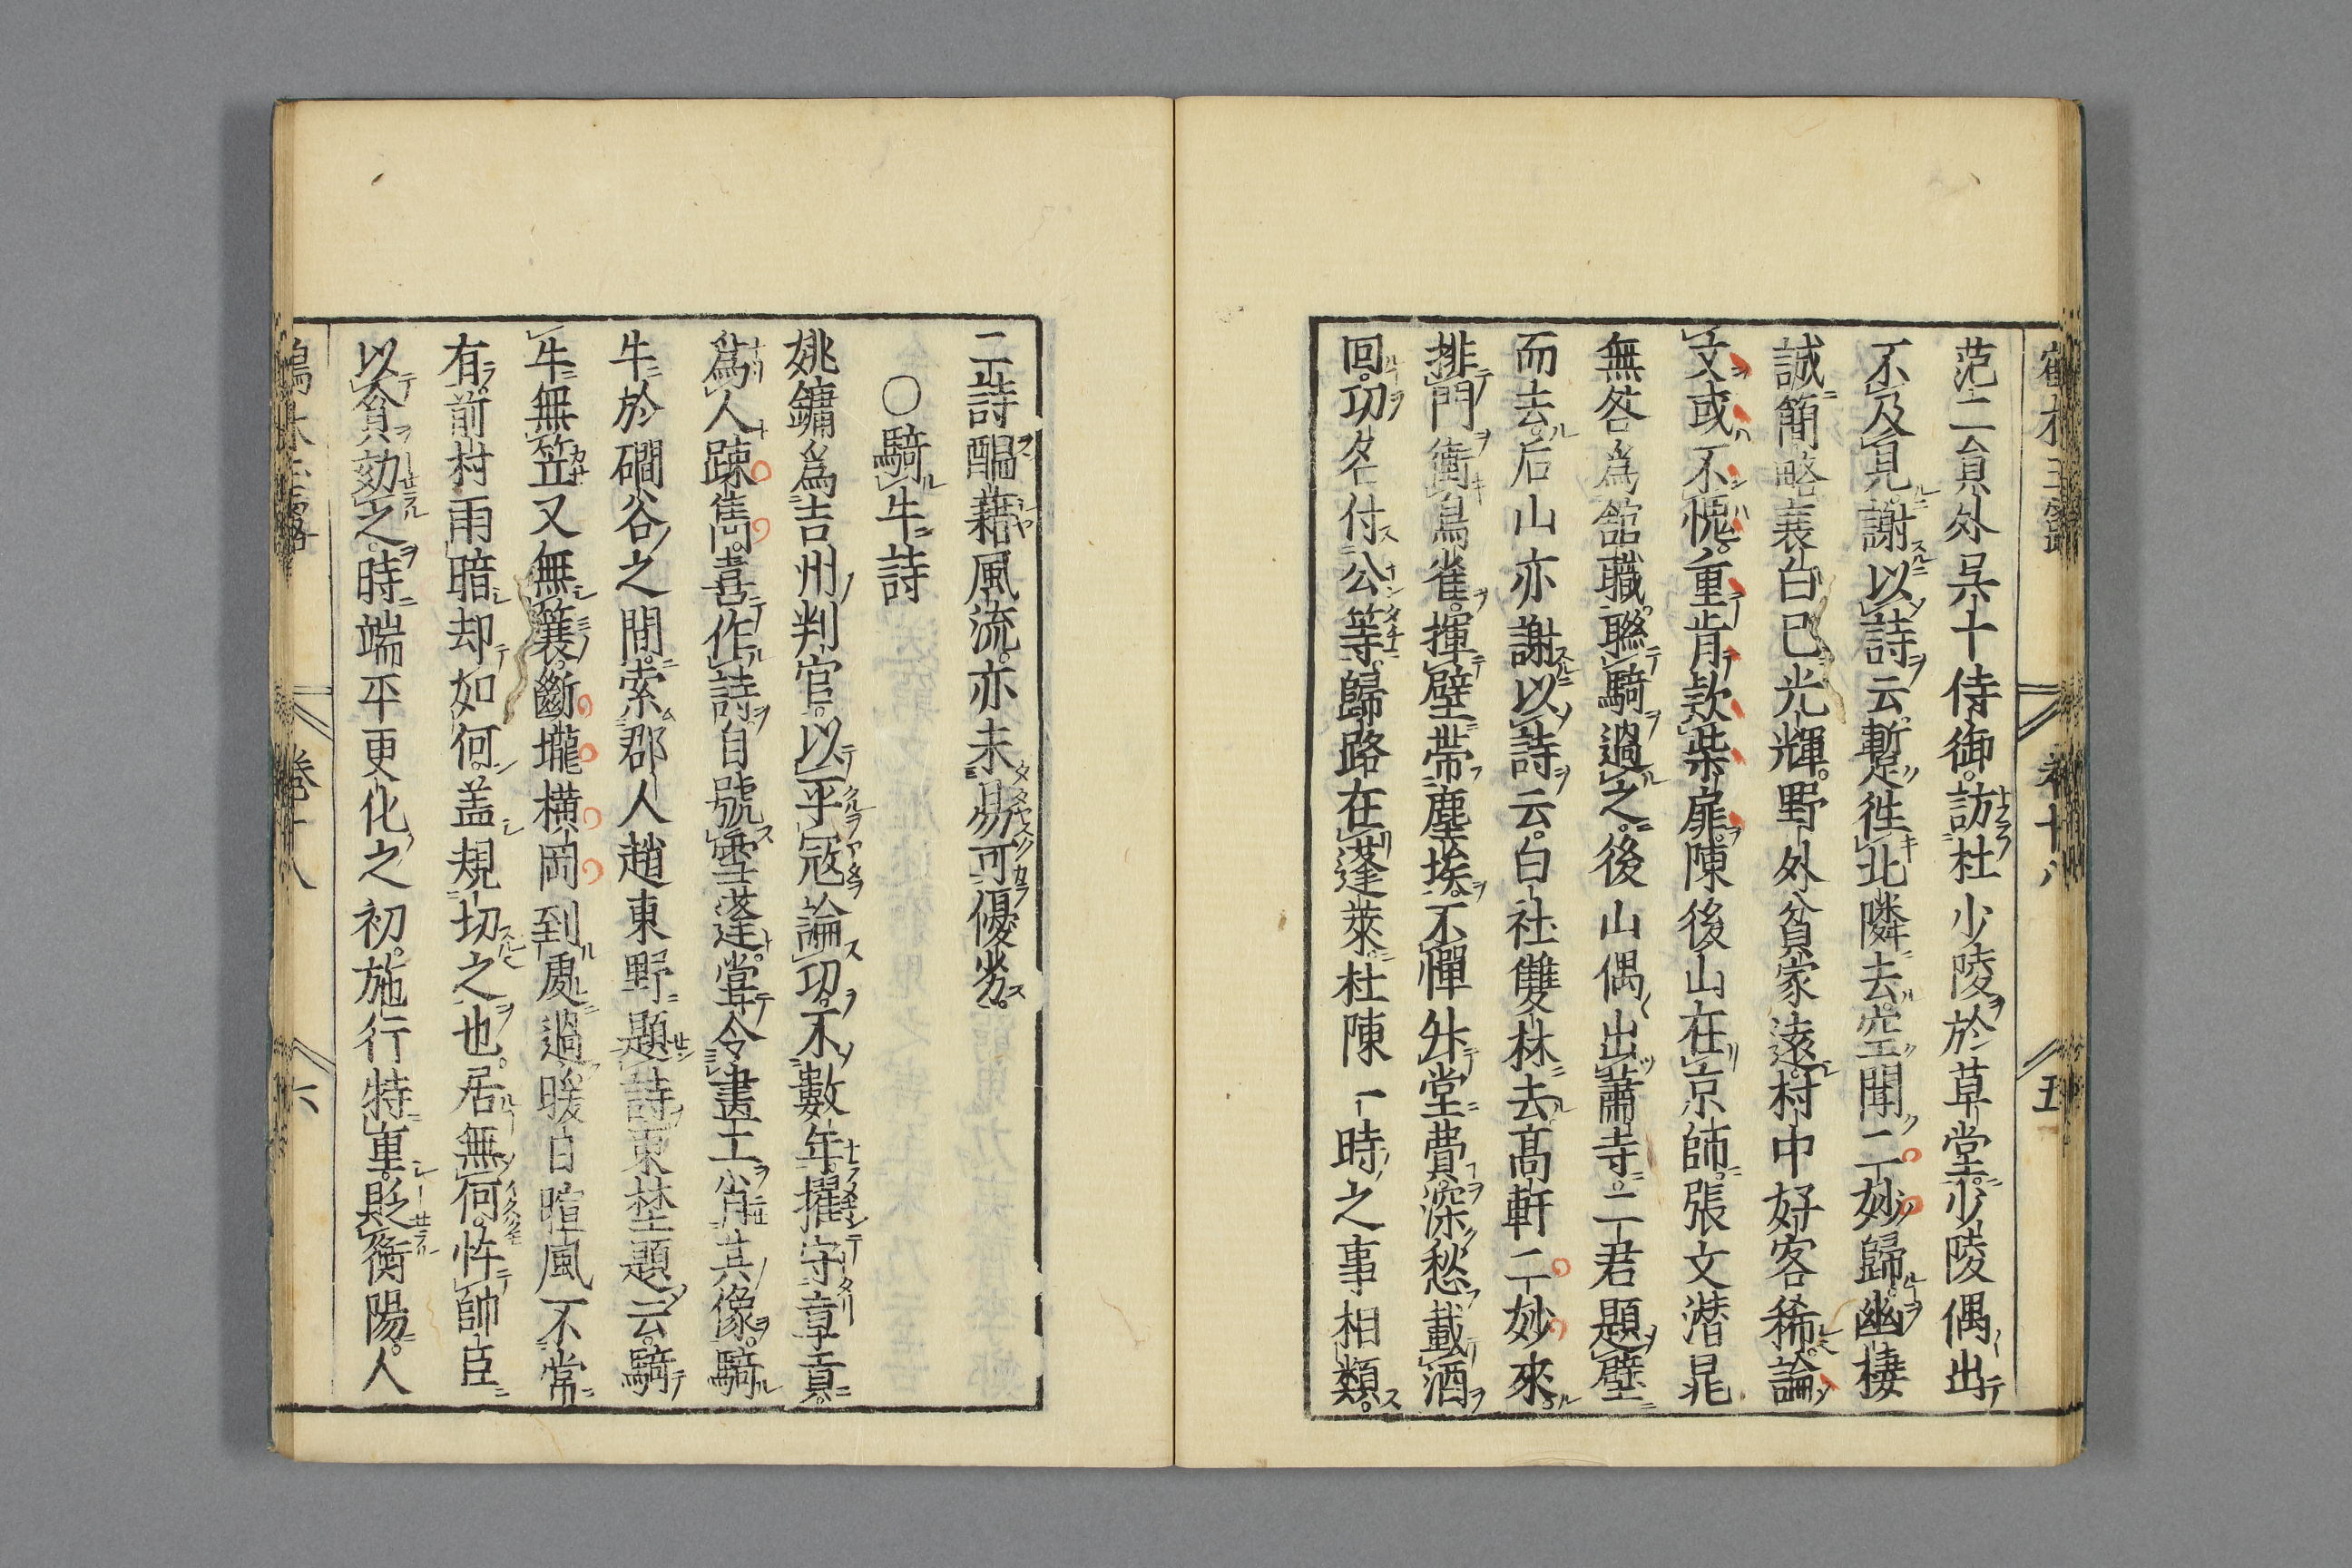 鶴林玉露　卷十八　五
范二員外吴十侍御。訪杜少陵於草堂。少陵偶出
不及見。謝以詩云。暫徃北隣去。空聞二妙歸。幽棲
誠簡略。衰白已光輝。野外貧家遠。村中好客稀。論
文或不愧。重肯欵柴扉。陳後山在京師。張文潜晁
無咎爲舘職。聯騎過之。後山偶出蕭寺。二君題壁
而去。后山亦謝以詩云。白社雙林去。髙軒二妙來。
排門衝鳥雀。揮壁帶塵埃。不憚升堂費。深愁載酒
回。功名付公等。歸路在蓬萊。杜陳一時之事相類。
二詩醞藉風流。亦未易可優劣。
〇騎牛詩
姚鏞爲吉州判官。以平寇論功。不數年。擢守章貢。
爲人踈雋。喜作詩。自號雪蓬。嘗令畫工肖其像。騎
牛於磵谷之間。索郡人趙東野題詩。東埜題云。騎
牛無笠又無簑。斷壠横岡到處過。暖日暄風不常
有。前村雨暗却如何。盖規切之也。居無何。忤帥臣。
以貪劾之。時端平更化之初。施行特重。貶衡陽。人
鶴林玉露　卷十八　六